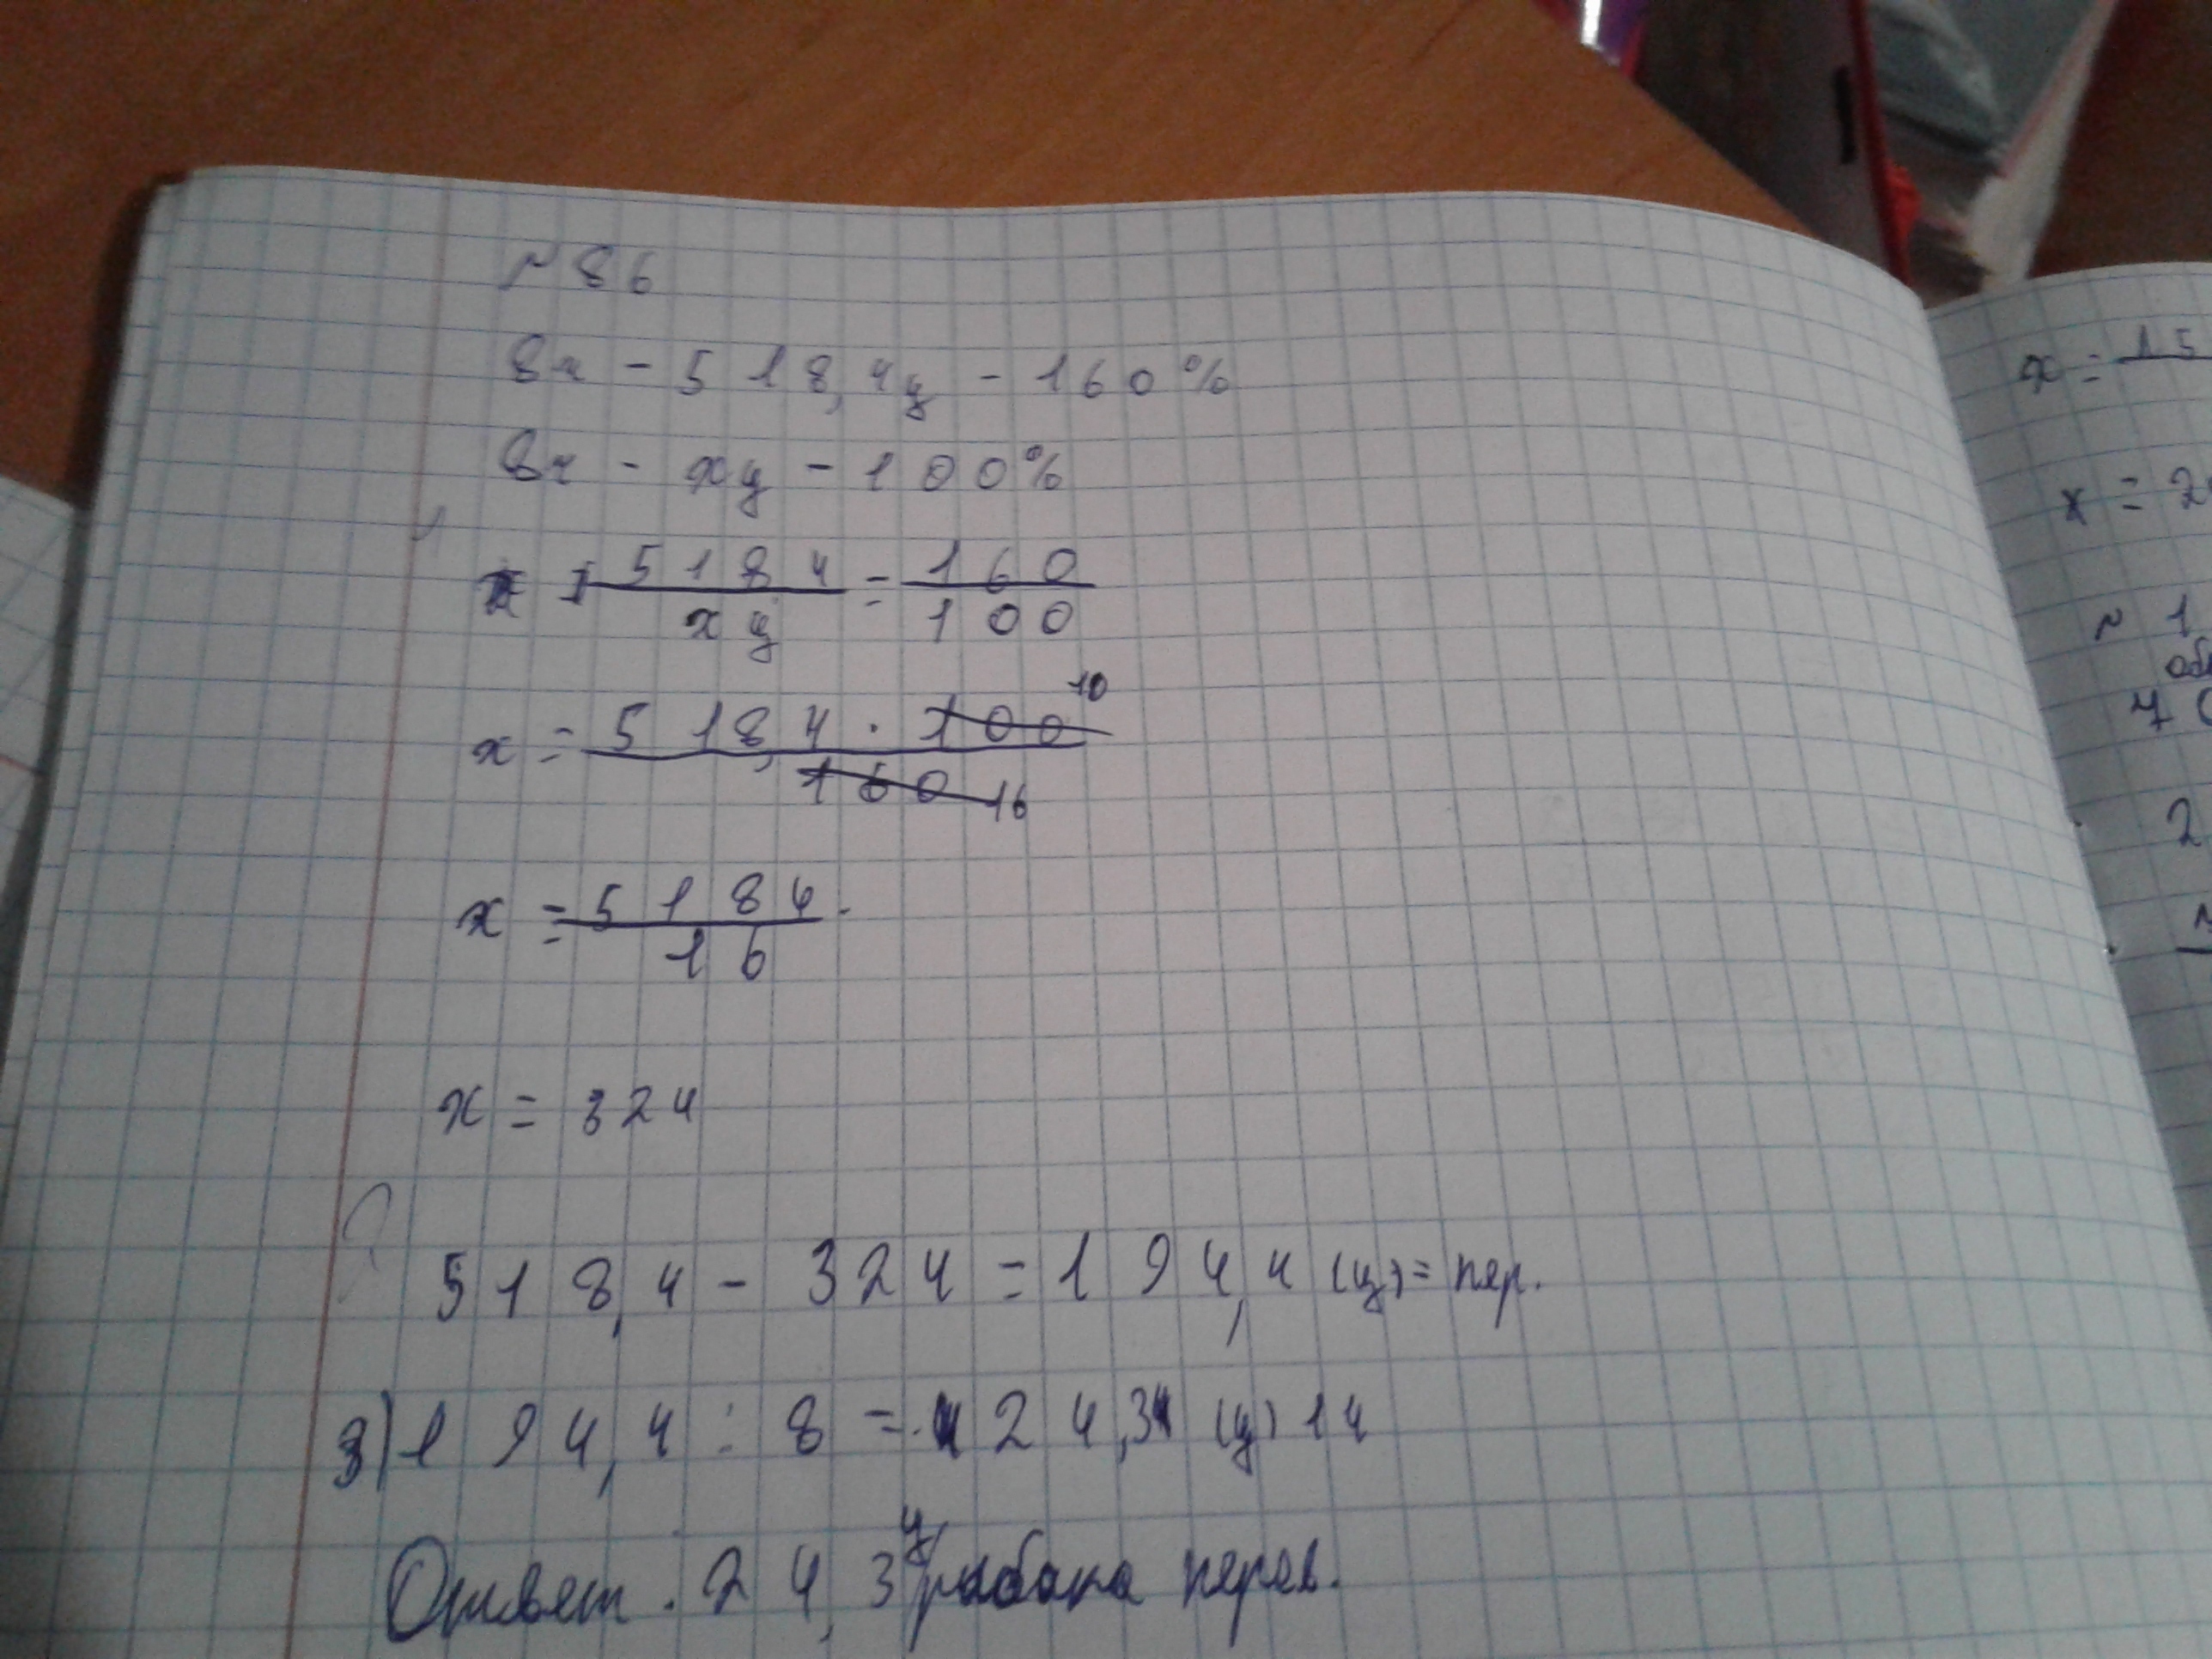 ~ 86
8ч - 518,4ц - 160%
8ч - xц - 100%
5184 / xц = 160 / 100
x = 518,4 · 100 10 / 160 16
x = 5184 / 16
x = 324
518,4 - 324 = 194,4 (ц) = пер.
3) 194,4 : 8 = 24,3 (ц) 1ч
Ответ. 24,3 ц рыбака перев.
x = 15
x = 2
~ 1
2